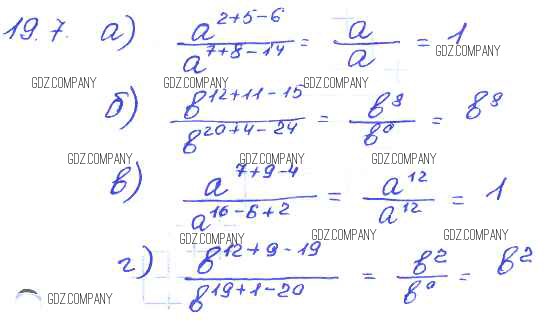 19.7. а) a^{2+5-6} / a^{7+8-14} = a / a = 1
GDZ.COMPANY GDZ.COMPANY GDZ.COMPANY GDZ.COMPANY
б) b^{12+11-15} / b^{20+4-24} = b^8 / b^0 = b^8
GDZ.COMPANY GDZ.COMPANY GDZ.COMPANY
в) a^{7+9-4} / a^{16-6+2} = a^{12} / a^{12} = 1
GDZ.COMPANY GDZ.COMPANY GDZ.COMPANY
г) b^{12+9-19} / b^{19+1-20} = b^2 / b^0 = b^2
GDZ.COMPANY